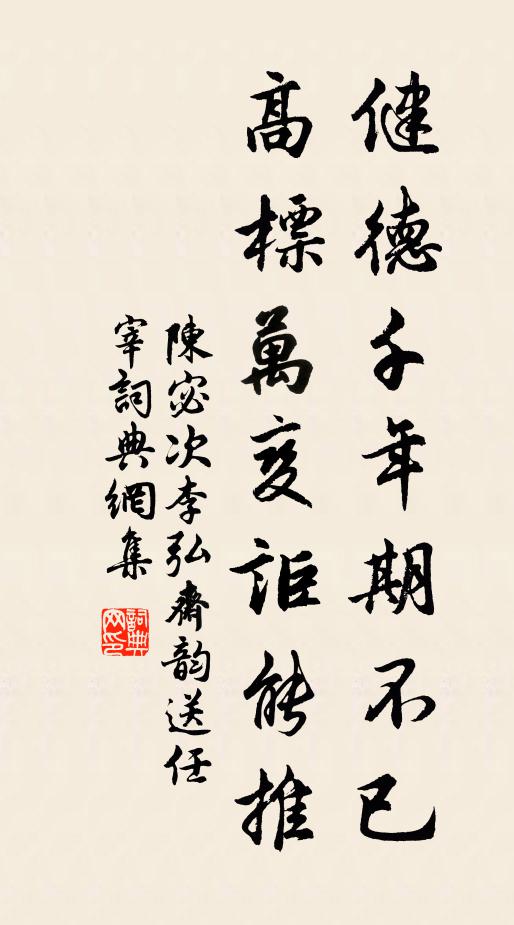 健德千年期不已
高標萬変詎能推
陳宓次李弘齋韵送任
宰詞典網集
詞典
网印